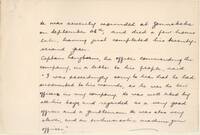 He was severely wounded at Zonnebeke
on September 26th, and died a few hours
later, having just completed his twenty-
second year.
Captain, the officer commanding the
company, in a letter to his people, said
"I was exceedingly sorry to hear that he had
succumbed to his wounds, as he was the best
officer in my company. He was well liked by
all his boys and regarded as a very good
officer and a gentleman. He was also very
officer.